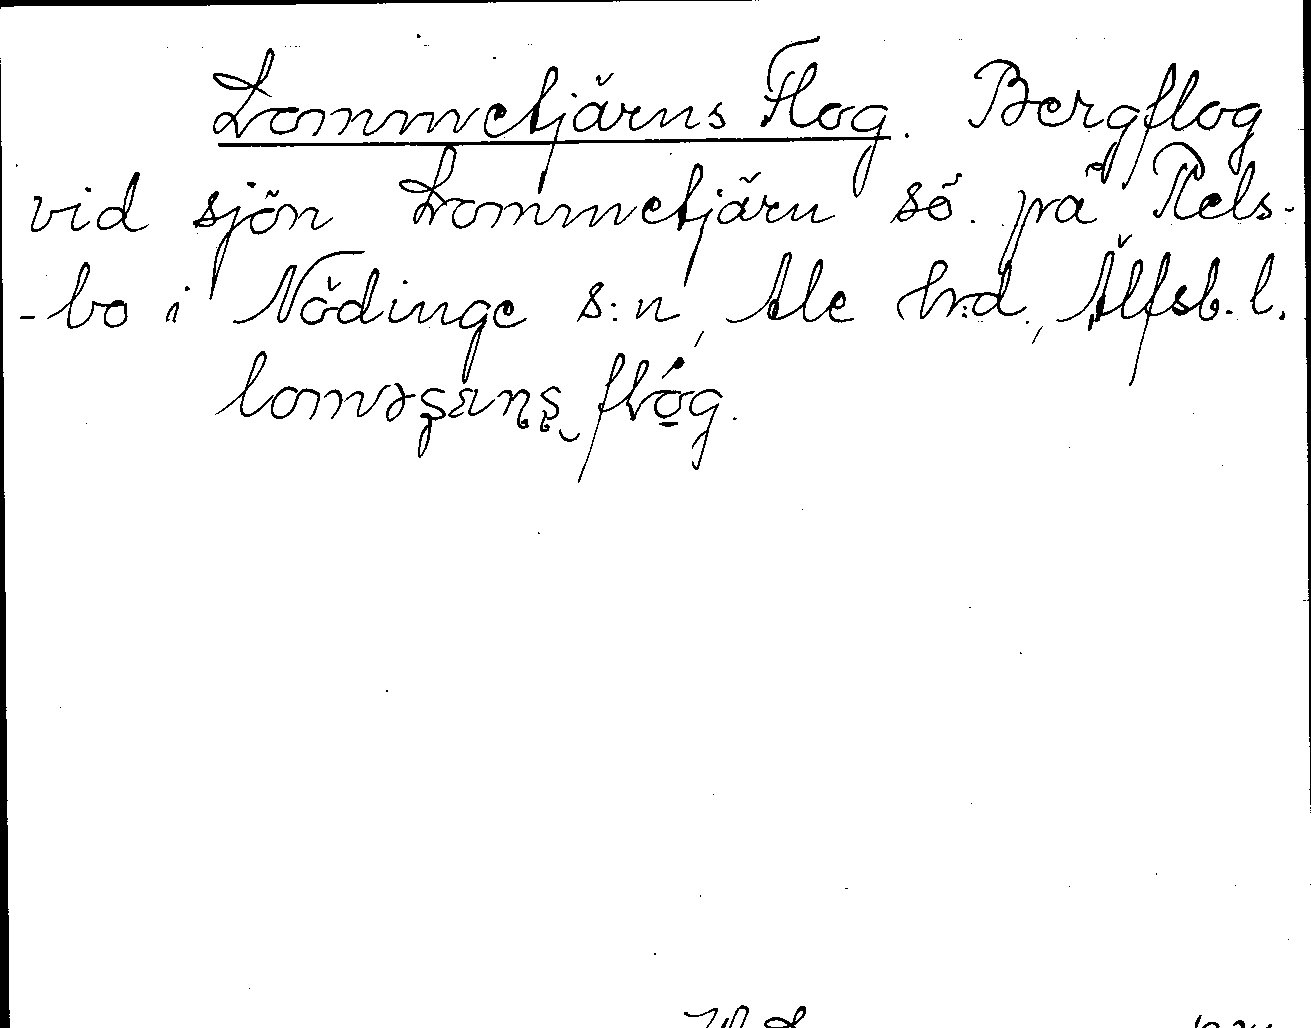 Lommetjärns Flog. Bergflog
vid sjön Lommetjärn sö. på Rels-
-bo i Nödinge s:n, Ale h:d., Älfsb. l.